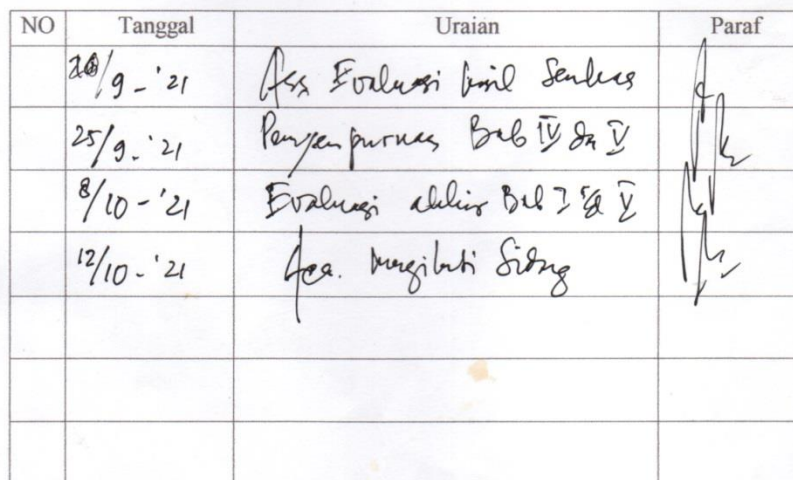 NO Tanggal Uraian Paraf
/9-'21 Evaluasi hasil
25/9-'21 Penyempurnaan Bab IV dan V
8/10-'21 Evaluasi akhir Bab I V
12/10-'21 Acc. mengikuti Sidang